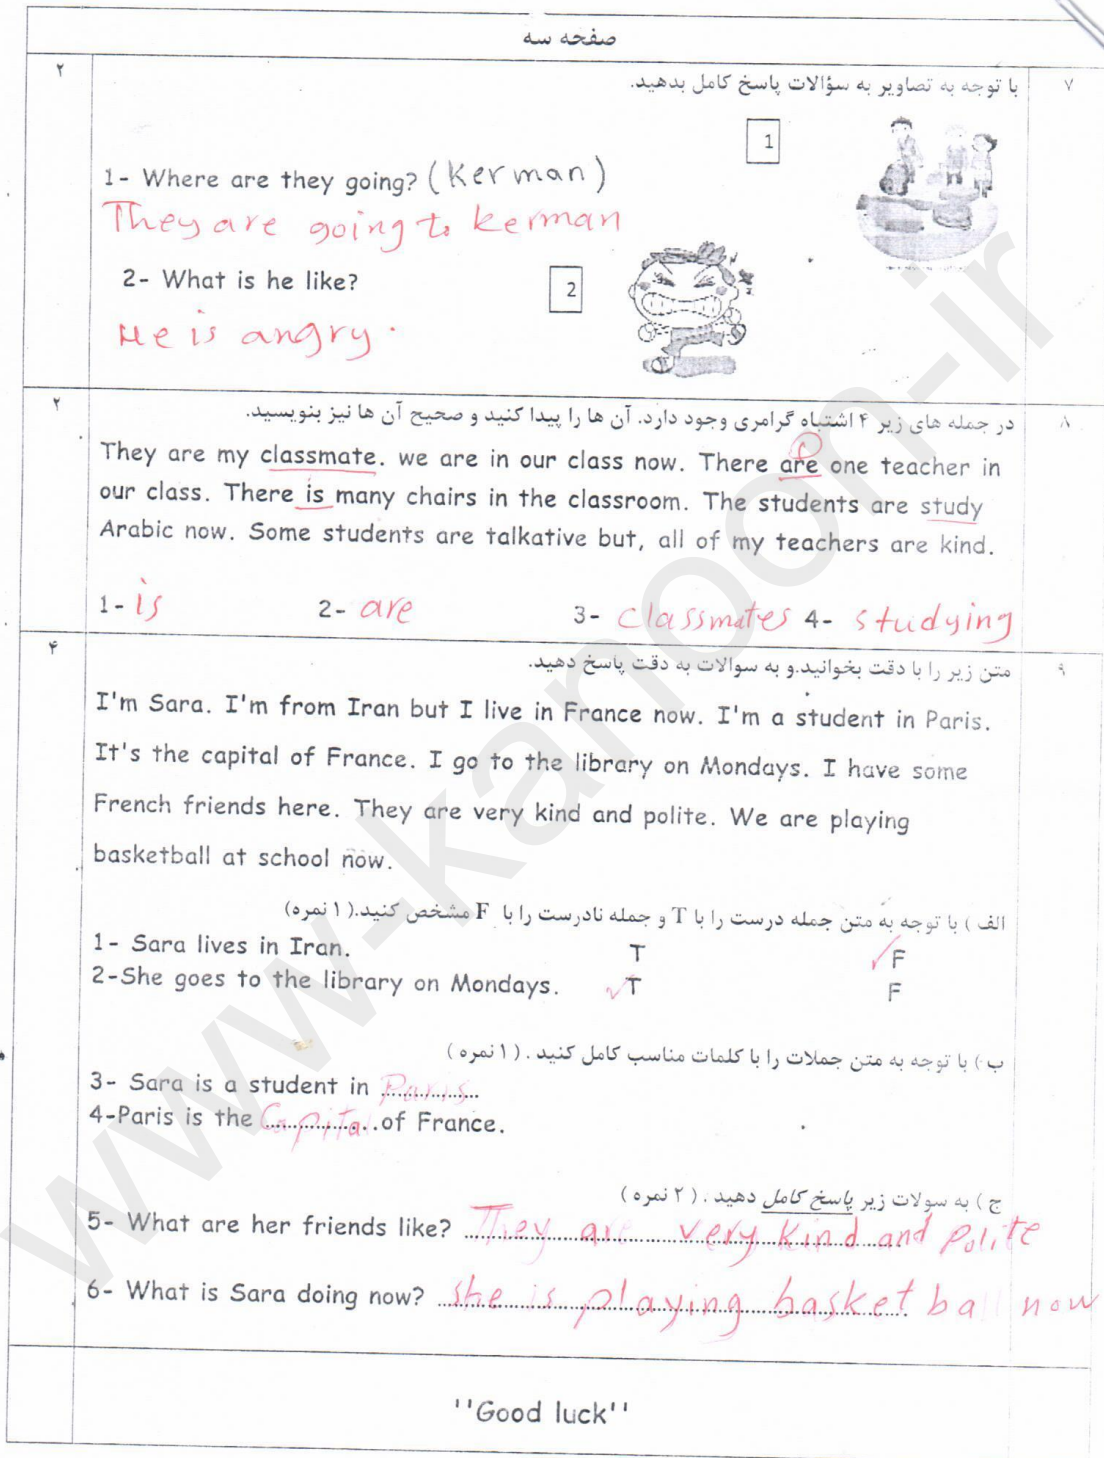 صفحه سه
۷ با توجه به تصاویر به سؤالات پاسخ کامل بدهید. ۲
1
1- Where are they going? (Kerman)
They are going to kerman
2- What is he like?
2
He is angry.
۸ در جمله های زیر ۴ اشتباه گرامری وجود دارد. آن ها را پیدا کنید و صحیح آن ها نیز بنویسید. ۲
They are my classmate. we are in our class now. There are one teacher in
our class. There is many chairs in the classroom. The students are study
Arabic now. Some students are talkative but, all of my teachers are kind.
1- is 2- are 3- classmates 4- studying
۹ متن زیر را با دقت بخوانید.و به سوالات به دقت پاسخ دهید. ۴
I'm Sara. I'm from Iran but I live in France now. I'm a student in Paris.
It's the capital of France. I go to the library on Mondays. I have some
French friends here. They are very kind and polite. We are playing
basketball at school now.
الف ) با توجه به متن جمله درست را با T و جمله نادرست را با F مشخص کنید.( ۱ نمره)
1- Sara lives in Iran. T ✓F
2-She goes to the library on Mondays. ✓T F
ب ) با توجه به متن جملات را با کلمات مناسب کامل کنید . ( ۱ نمره )
3- Sara is a student in Paris
4-Paris is the Capital of France.
ج ) به سولات زیر پاسخ کامل دهید . ( ۲ نمره )
5- What are her friends like? They are very kind and Polite
6- What is Sara doing now? she is playing basket ball now
''Good luck''
www-kanoon-ir